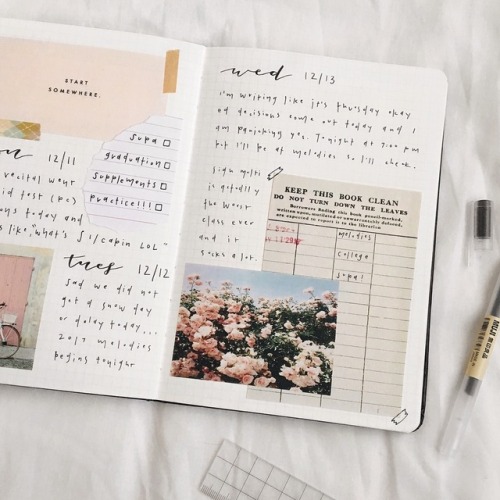 START
SOMEWHERE.
supa
graduation
supplements
practice!!!
12/11
recital went
test (pc)
today and
like "what's ∫ 1/cabin LOL"
tues 12/12
sad we did not
get a snow day
or delay today...
2017 melodies
begins tonight
wed 12/13
i'm writing like it's thursday okay
decisions come out today and i
am panicking yes. Tonight at 7:00 pm
but i'll be at melodies so i'll check.
sign
is totally
the worst
class ever
and it
sucks a lot.
KEEP THIS BOOK CLEAN
DO NOT TURN DOWN THE LEAVES
Borrowers finding this book pencil-marked,
written upon, mutilated or unwarrantably defaced,
are expected to report it to the librarian
melodies
college
supa!
MUJI 無印良品